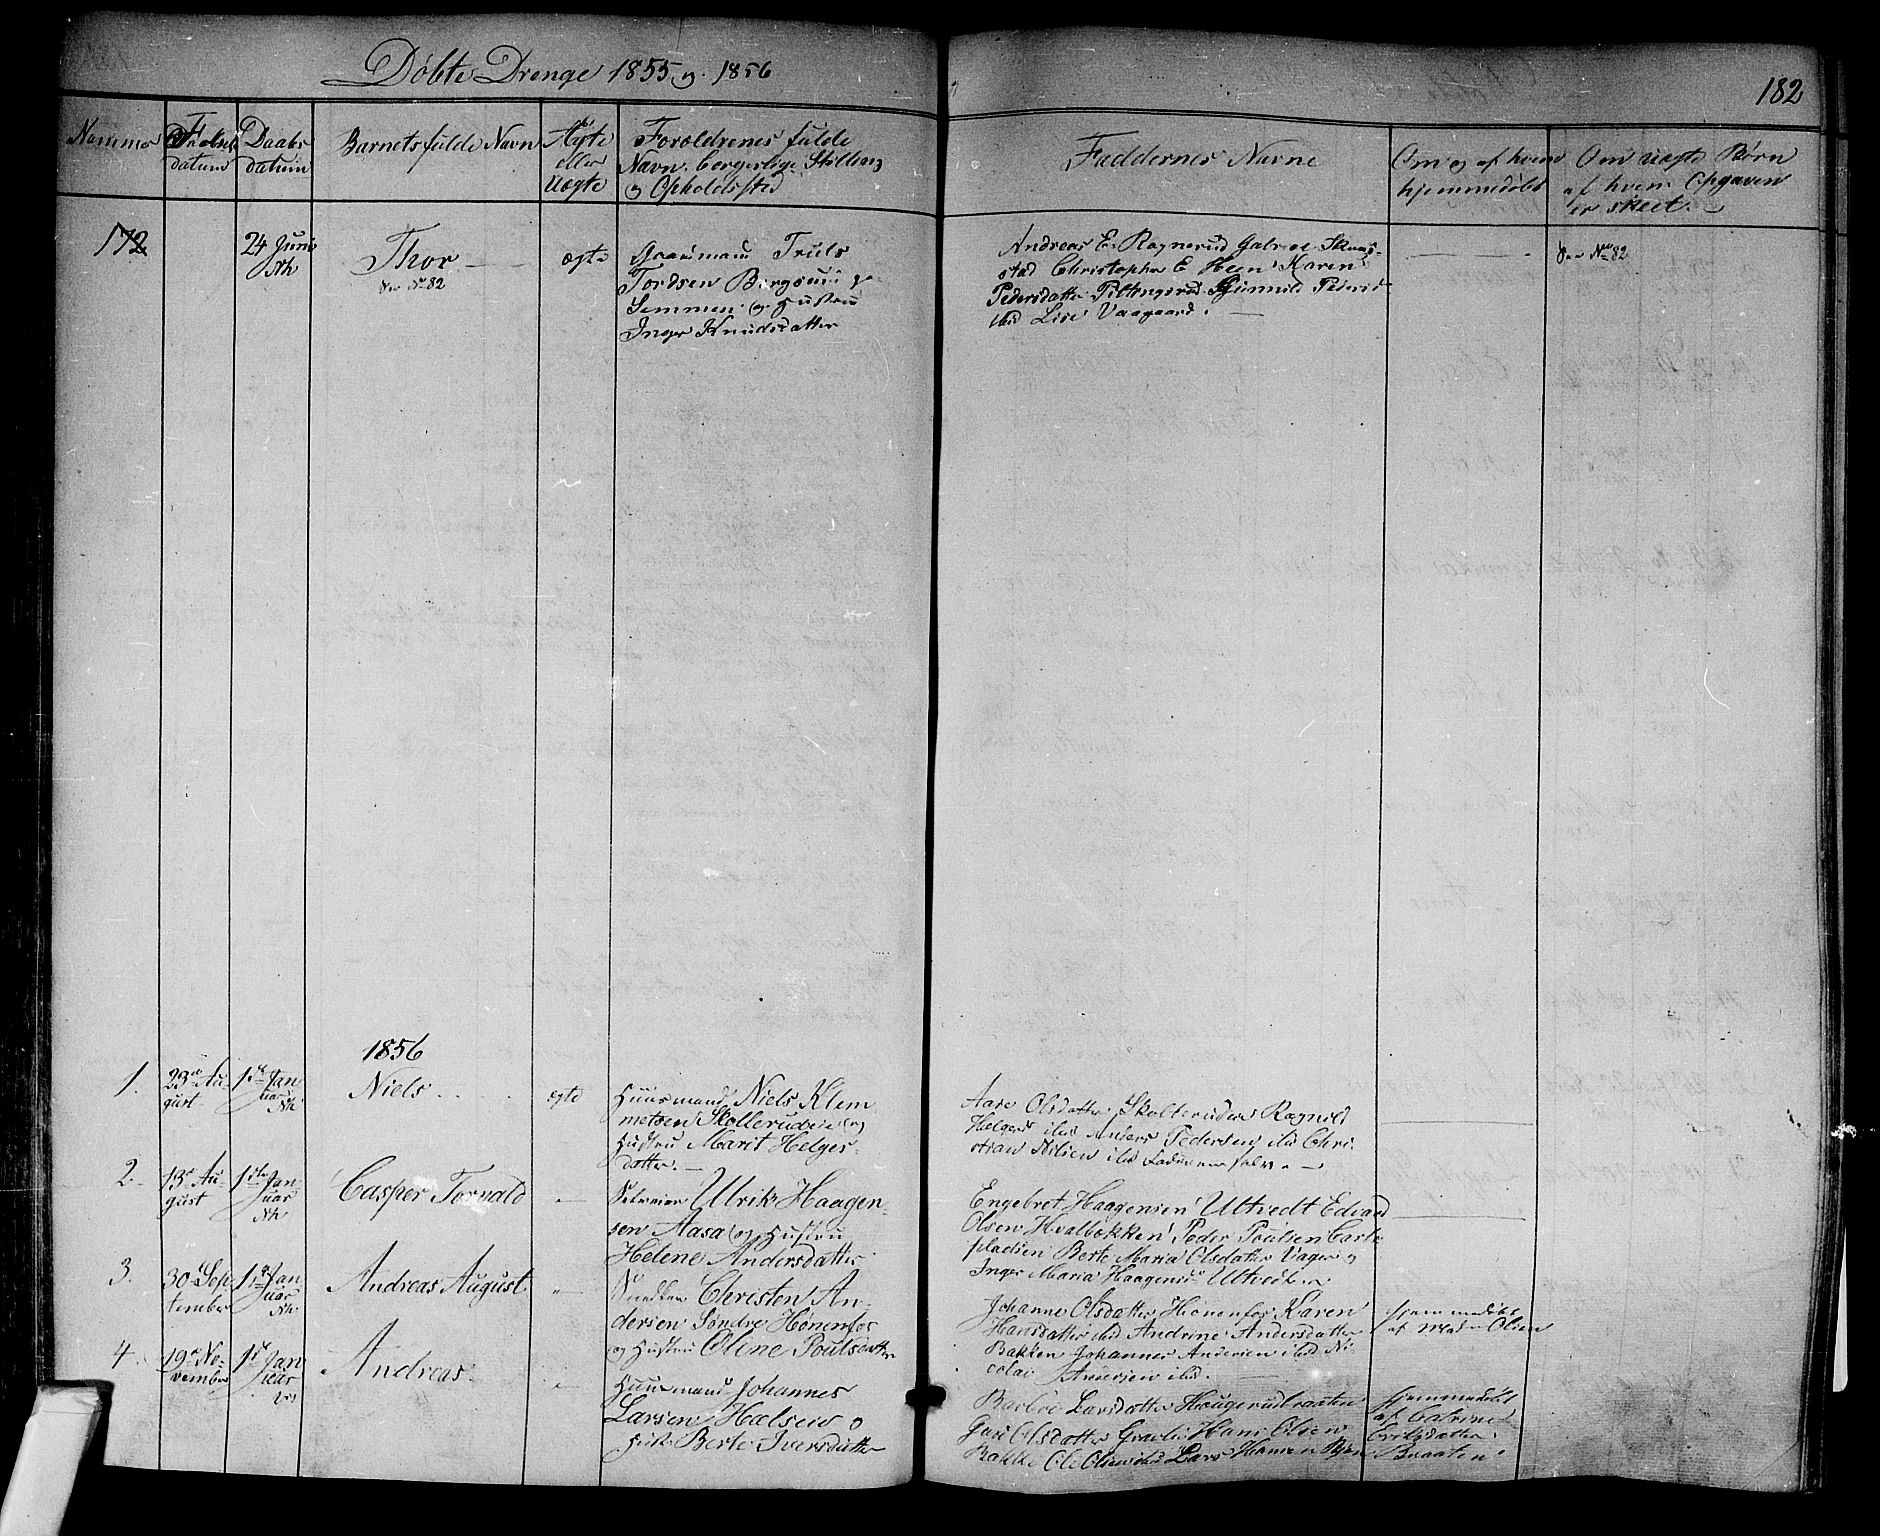 Döbte Drenge 1855 og 1856
182
Nummer
Fødsels datum
Daabs datum
Barnets fulde Navn
Ægte eller Uægte
Forældrenes fulde
Navn, borgerlige Stilling
og Opholdssted
Faddernes Navne
Om og af hvem
hjemmedøbt
Om uægte Børn
af hvem Opgaven
er skeet.
172
24 Juni
Nh
Thor
See No 82
ægte
Gaardmand Truls
Tordsen Bergsund
Semmen og Hustru
Inger Knudsdatter
Andreas E. Ragnerud Gabriel
stad Christopher E Heen Karen
Pedersdatter Piltingsrud Gunnild Peders
ibid Lise Vaagaard.
See No 82
1856
1.
23de Au-
gust
1ste Jan
uar
Nh
Niels
ægte
Huusmand Niels Klem
metsen Skollerudeie og
Hustru Marit Helges-
datter.
Aase Olsdatter Skollerudeie Ragnild
Helgesd ibid Anders Pedersen ibid Chri-
stian Nilsen ibid Faderen selv.
2.
13de Au-
gust
1ste Jan
uar
Nh
Casper Torvald
Selveier Ulrik Haagen-
sen Aasa og Hustru
Helene Andersdatter
Engebret Haagensen Ultvedt Edvard
Olsen Hvalbækken Peder Poulsen Carls
pladsen Berte Maria Olsdatter Vager og
Inger Maria Haagensd Ultvedt.
3.
30 Sep
tember
1ste Jan
uar
Nh
Andreas August
Christen An-
dersen Søndre Hønenfos
og Hustru Oline Poulsdatter
Johanne Olsdatter Hønenfos Karen
Hansdatter ibid Andrine Andersdatter
Bakken Johannes Andersen ibid Ni
colai Andersen ibid.
Hjemmedøbt
af Mad. Olsen
4.
19de No-
vember
1ste Jan
uar
Andreas
Huusmand Johannes
Larsen Hælseie og
Hustr Berte Iversdatter
Larsdatter Haugerudbraaten
Guri Olsdatter Hans Olsen
Bakke Ole Olsen ibid Lars Hansen
Hjemmedøbt
af Catrine
Eriksdatter
Braaten